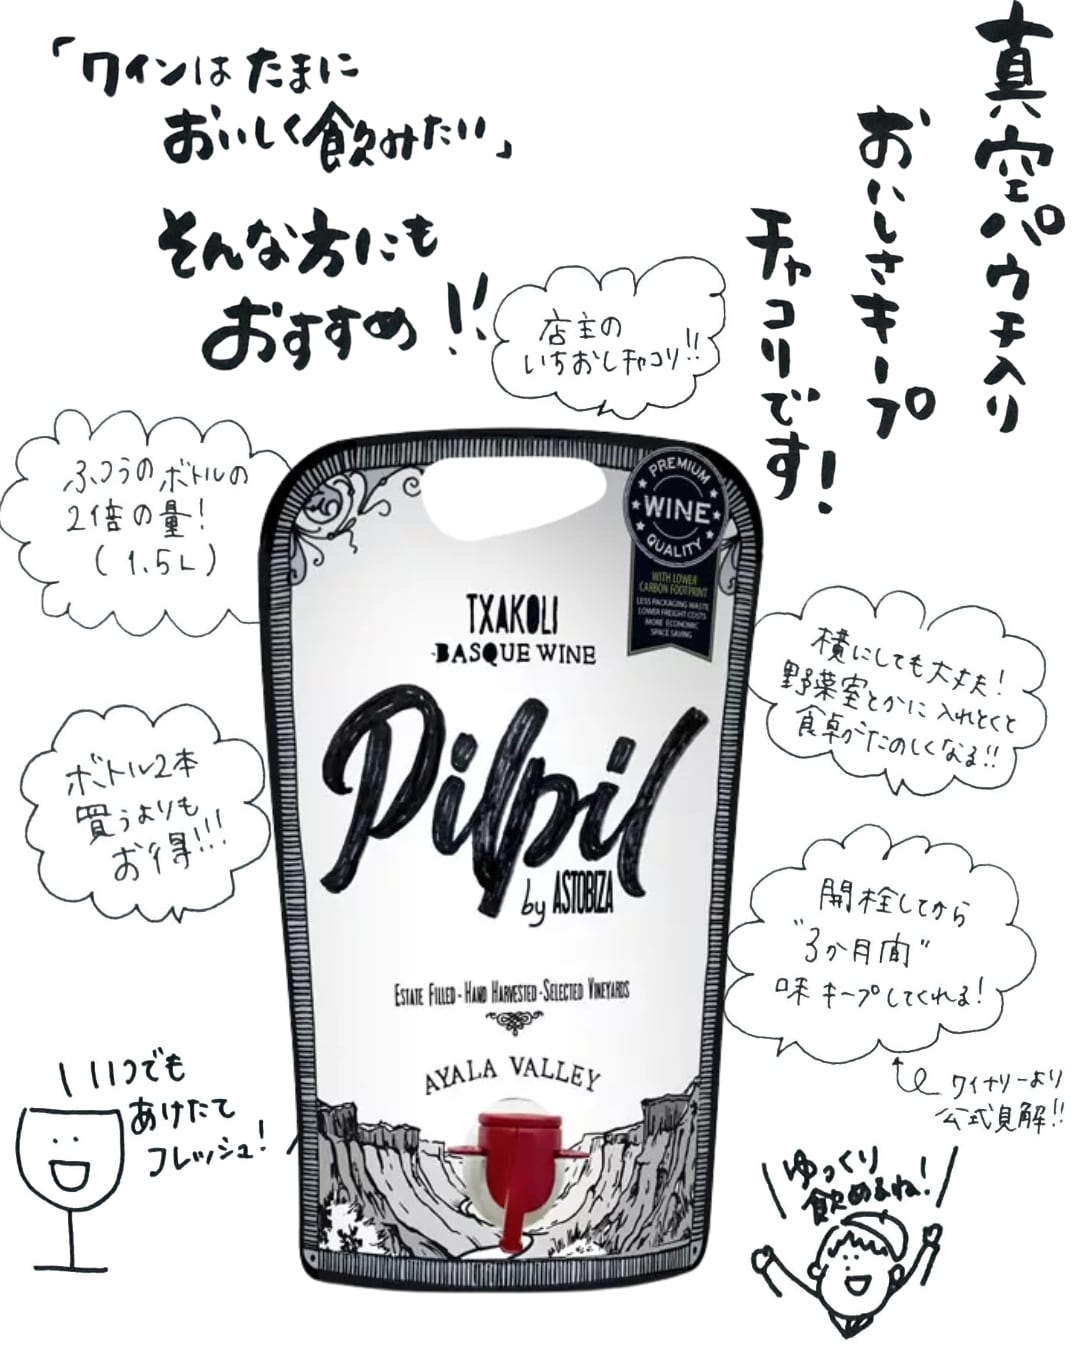 「ワインは たまに
おいしく飲みたい」
そんな方にも
おすすめ!!
真空パウチ入り
おいしさキープ
チャコリです!
店主の
いちおしチャコリ!!
ふつうのボトルの
2倍の量!
(1.5L)
ボトル2本
買うよりも
お得!!!
横にしても大丈夫!
野菜室とかに入れとくと
食卓がたのしくなる!!
開栓してから
"3か月間"
味キープしてくれる!
ワイナリーより
公式見解!!
いつでも
あけたて
フレッシュ!
ゆっくり
飲めるね!
PREMIUM
WINE
QUALITY
WITH LOWER
CARBON FOOTPRINT
LESS PACKAGING WASTE
LOWER FREIGHT COSTS
MORE ECONOMIC
SPACE SAVING
TXAKOLI
BASQUE WINE
Pilpil
by ASTOBIZA
ESTATE FILLED - HAND HARVESTED - SELECTED VINEYARDS
AYALA VALLEY